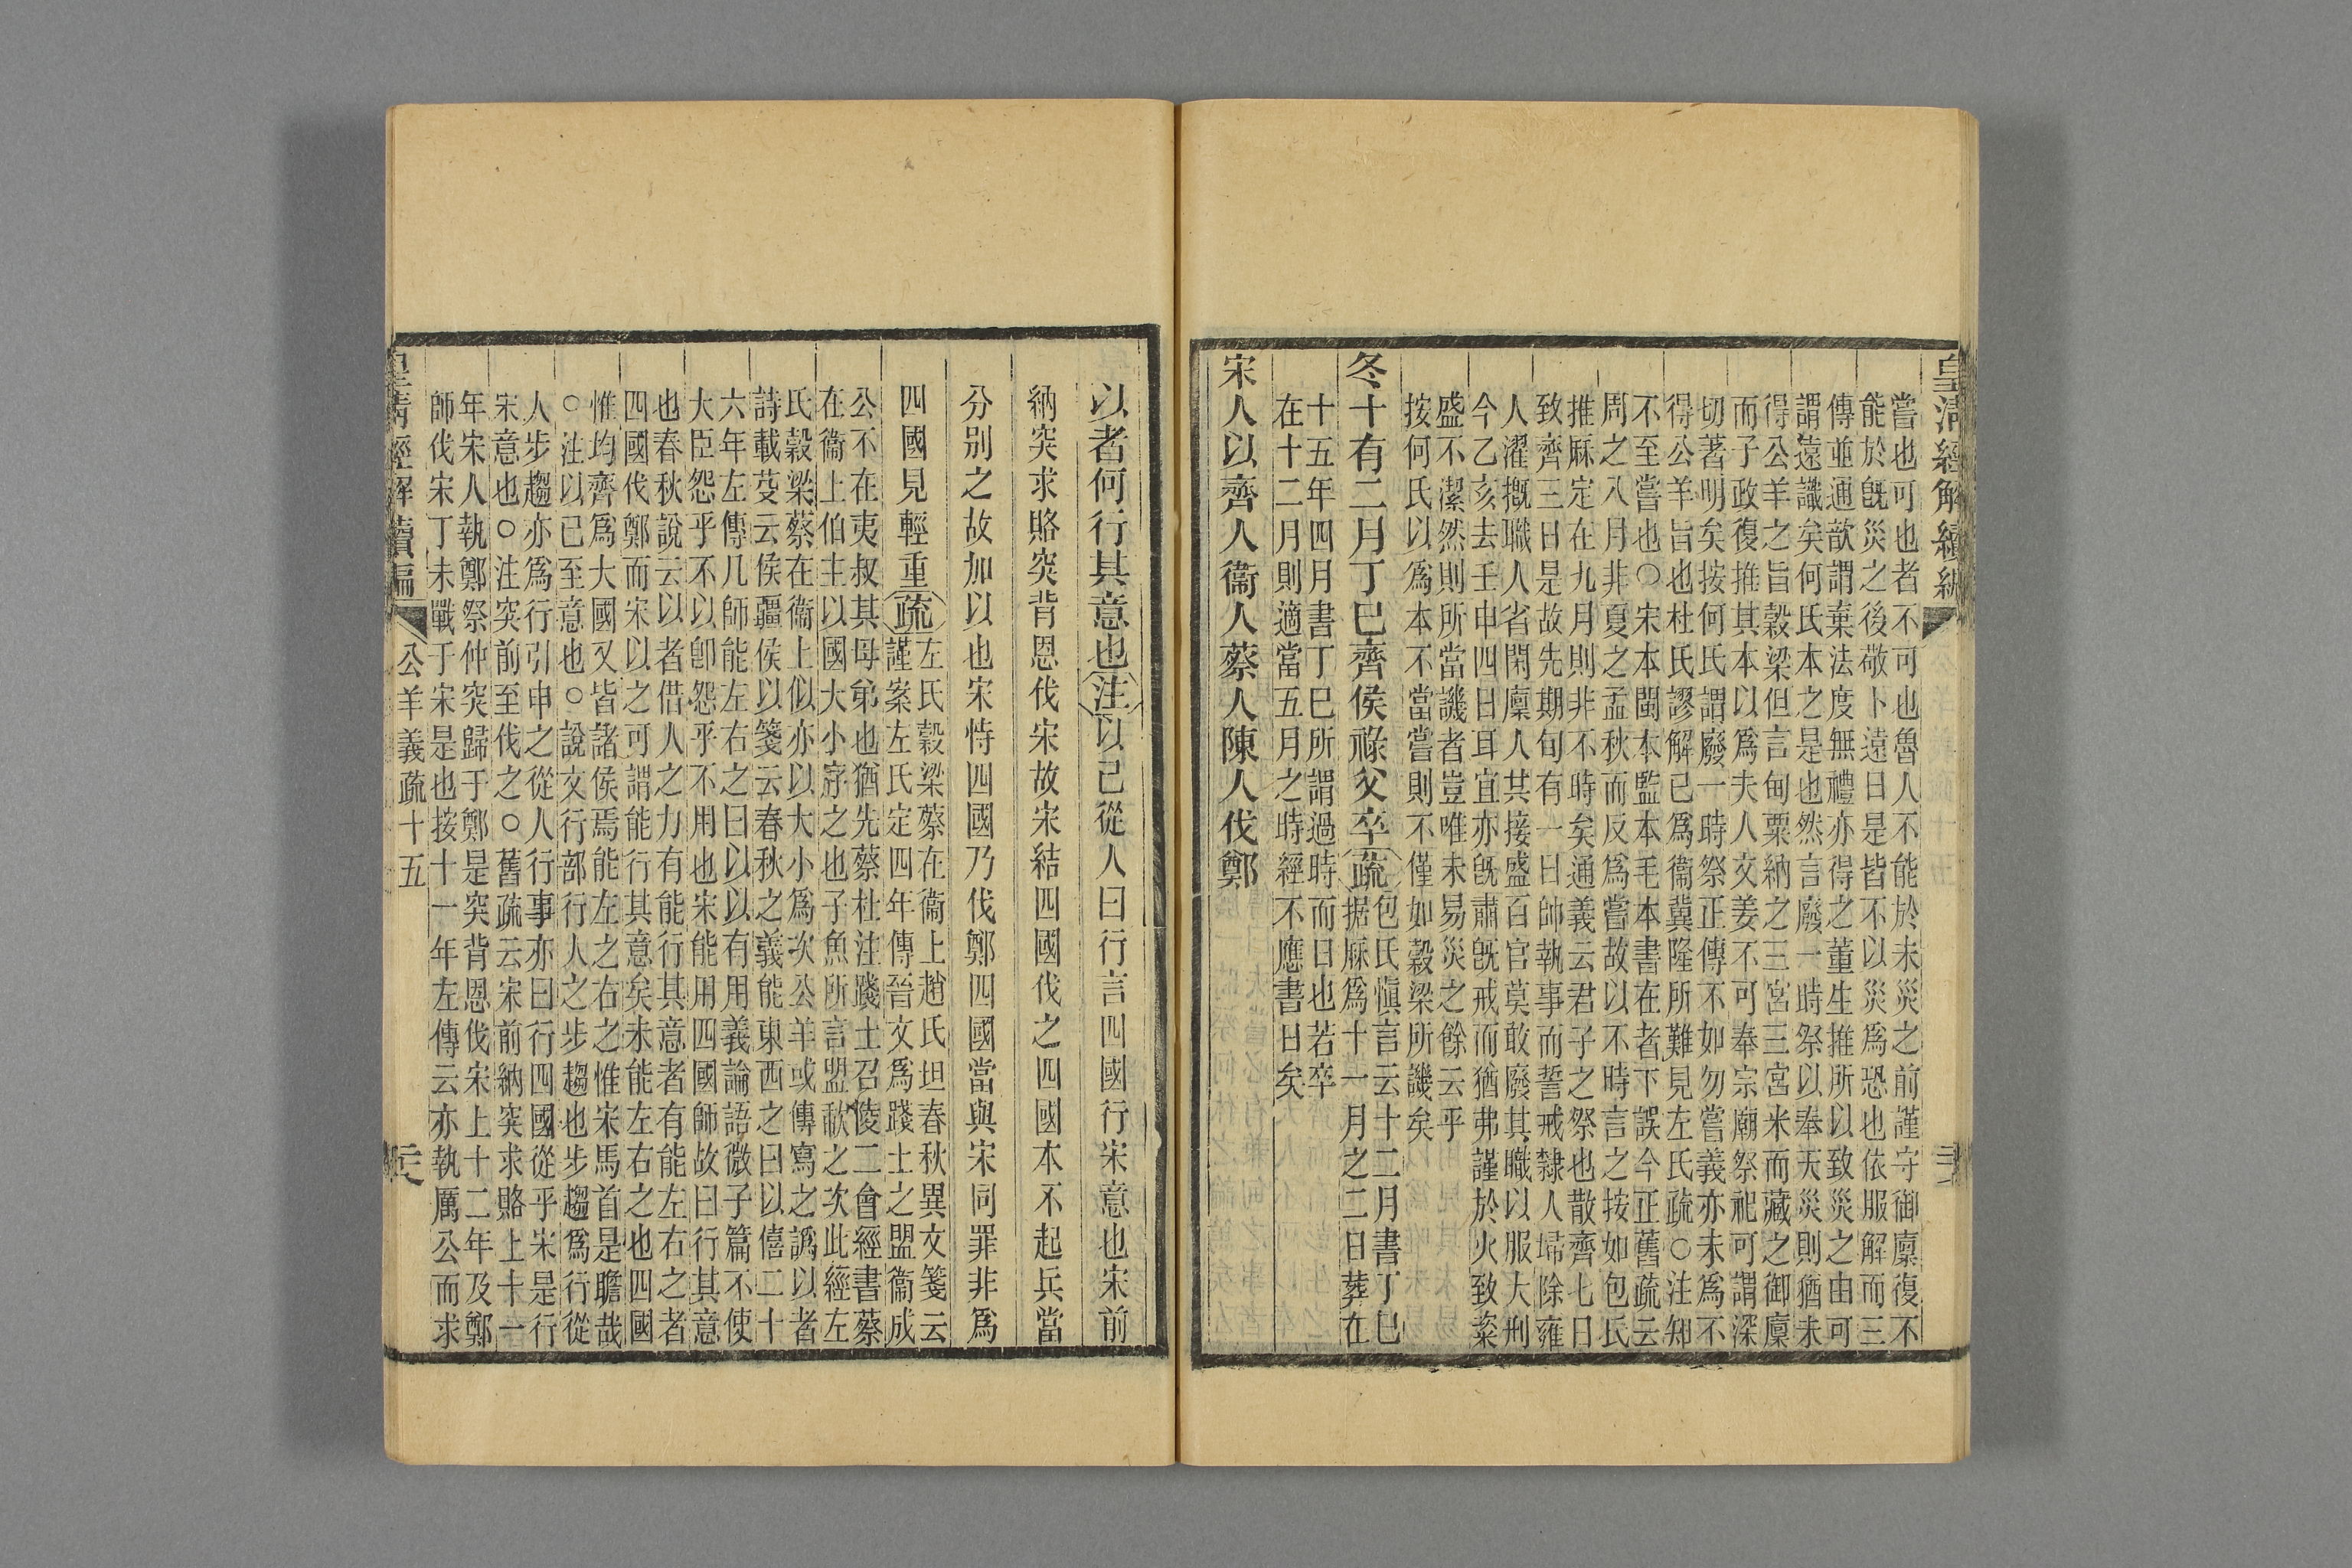 皇清經解續編
嘗也可也者不可也魯人不能於未災之前謹守御廩復不
能於旣災之後敬卜遠日是皆不以災爲恐也依服解而三
傳並通歆謂棄法度無禮亦得之董生推所以致災之由可
謂遠讖矣何氏本之是也然言廢一時祭以奉天災則猶未
得公羊之旨穀梁但言甸粟納之三宮三宮米而藏之御廩
而子政復推其本以爲夫人文姜不可奉宗廟祭祀可謂深
切著明矣按何氏謂廢一時祭正傳不如勿嘗義亦未爲不
得公羊旨也杜氏謬解已爲衞冀隆所難見左氏疏○注知
不至嘗也○宋本閩本監本毛本書在者下誤今正舊疏云
周之八月非夏之孟秋而反爲嘗故以不時言之按如包氏
推厤定在九月則非不時矣通義云君子之祭也散齊七日
致齊三日是故先期旬有一日帥執事而誓戒隸人埽除雍
人濯摡職人省閑廩人其接盛百官莫敢廢其職以服大刑
今乙亥去壬申四日耳宜亦旣肅旣戒而猶弗謹於火致粢
盛不潔然則所當譏者豈唯未易災之餘云乎
按何氏以爲本不當嘗則不僅如穀梁所譏矣
冬十有二月丁巳齊侯祿父卒疏
包氏愼言云十二月書丁巳
据厤爲十一月之二日葬在
十五年四月書丁巳所謂過時而日也若卒
在十二月則適當五月之時經不應書日矣
宋人以齊人衞人蔡人陳人伐鄭
以者何行其意也注以己從人曰行言四國行宋意也宋前
納突求賂突背恩伐宋故宋結四國伐之四國本不起兵當
分別之故加以也宋恃四國乃伐鄭四國當與宋同罪非爲
四國見輕重疏
左氏穀梁蔡在衞上趙氏坦春秋異文箋云
謹案左氏定四年傳晉文爲踐土之盟衞成
公不在夷叔其母弟也猶先蔡杜注踐土召陵二會經書蔡
在衞上伯主以國大小序之也子魚所言盟歃之次此經左
氏穀梁蔡在衞上似亦以大小爲次公羊或傳寫之譌以者
詩載芟云侯彊侯以箋云春秋之義能東西之曰以僖二十
六年左傳凡師能左右之曰以以有用義論語微子篇不使
大臣怨乎不以卽怨乎不用也宋能用四國師故曰行其意
也春秋說云以者借人之力有能行其意者有能左右之者
四國伐鄭而宋以之可謂能行其意矣未能左右之也四國
惟均齊爲大國又皆諸侯焉能左之右之惟宋馬首是瞻哉
○注以己至意也○說文行部行人之步趨也步趨爲行從
人步趨亦爲行引申之從人行事亦曰行四國從乎宋是行
宋意也○注突前至伐之○舊疏云宋前納突求賂上十一
年宋人執鄭祭仲突歸于鄭是突背恩伐宋上十二年及鄭
師伐宋丁未戰于宋是也按十一年左傳云亦執厲公而求
皇清經解續編
公羊義疏十五